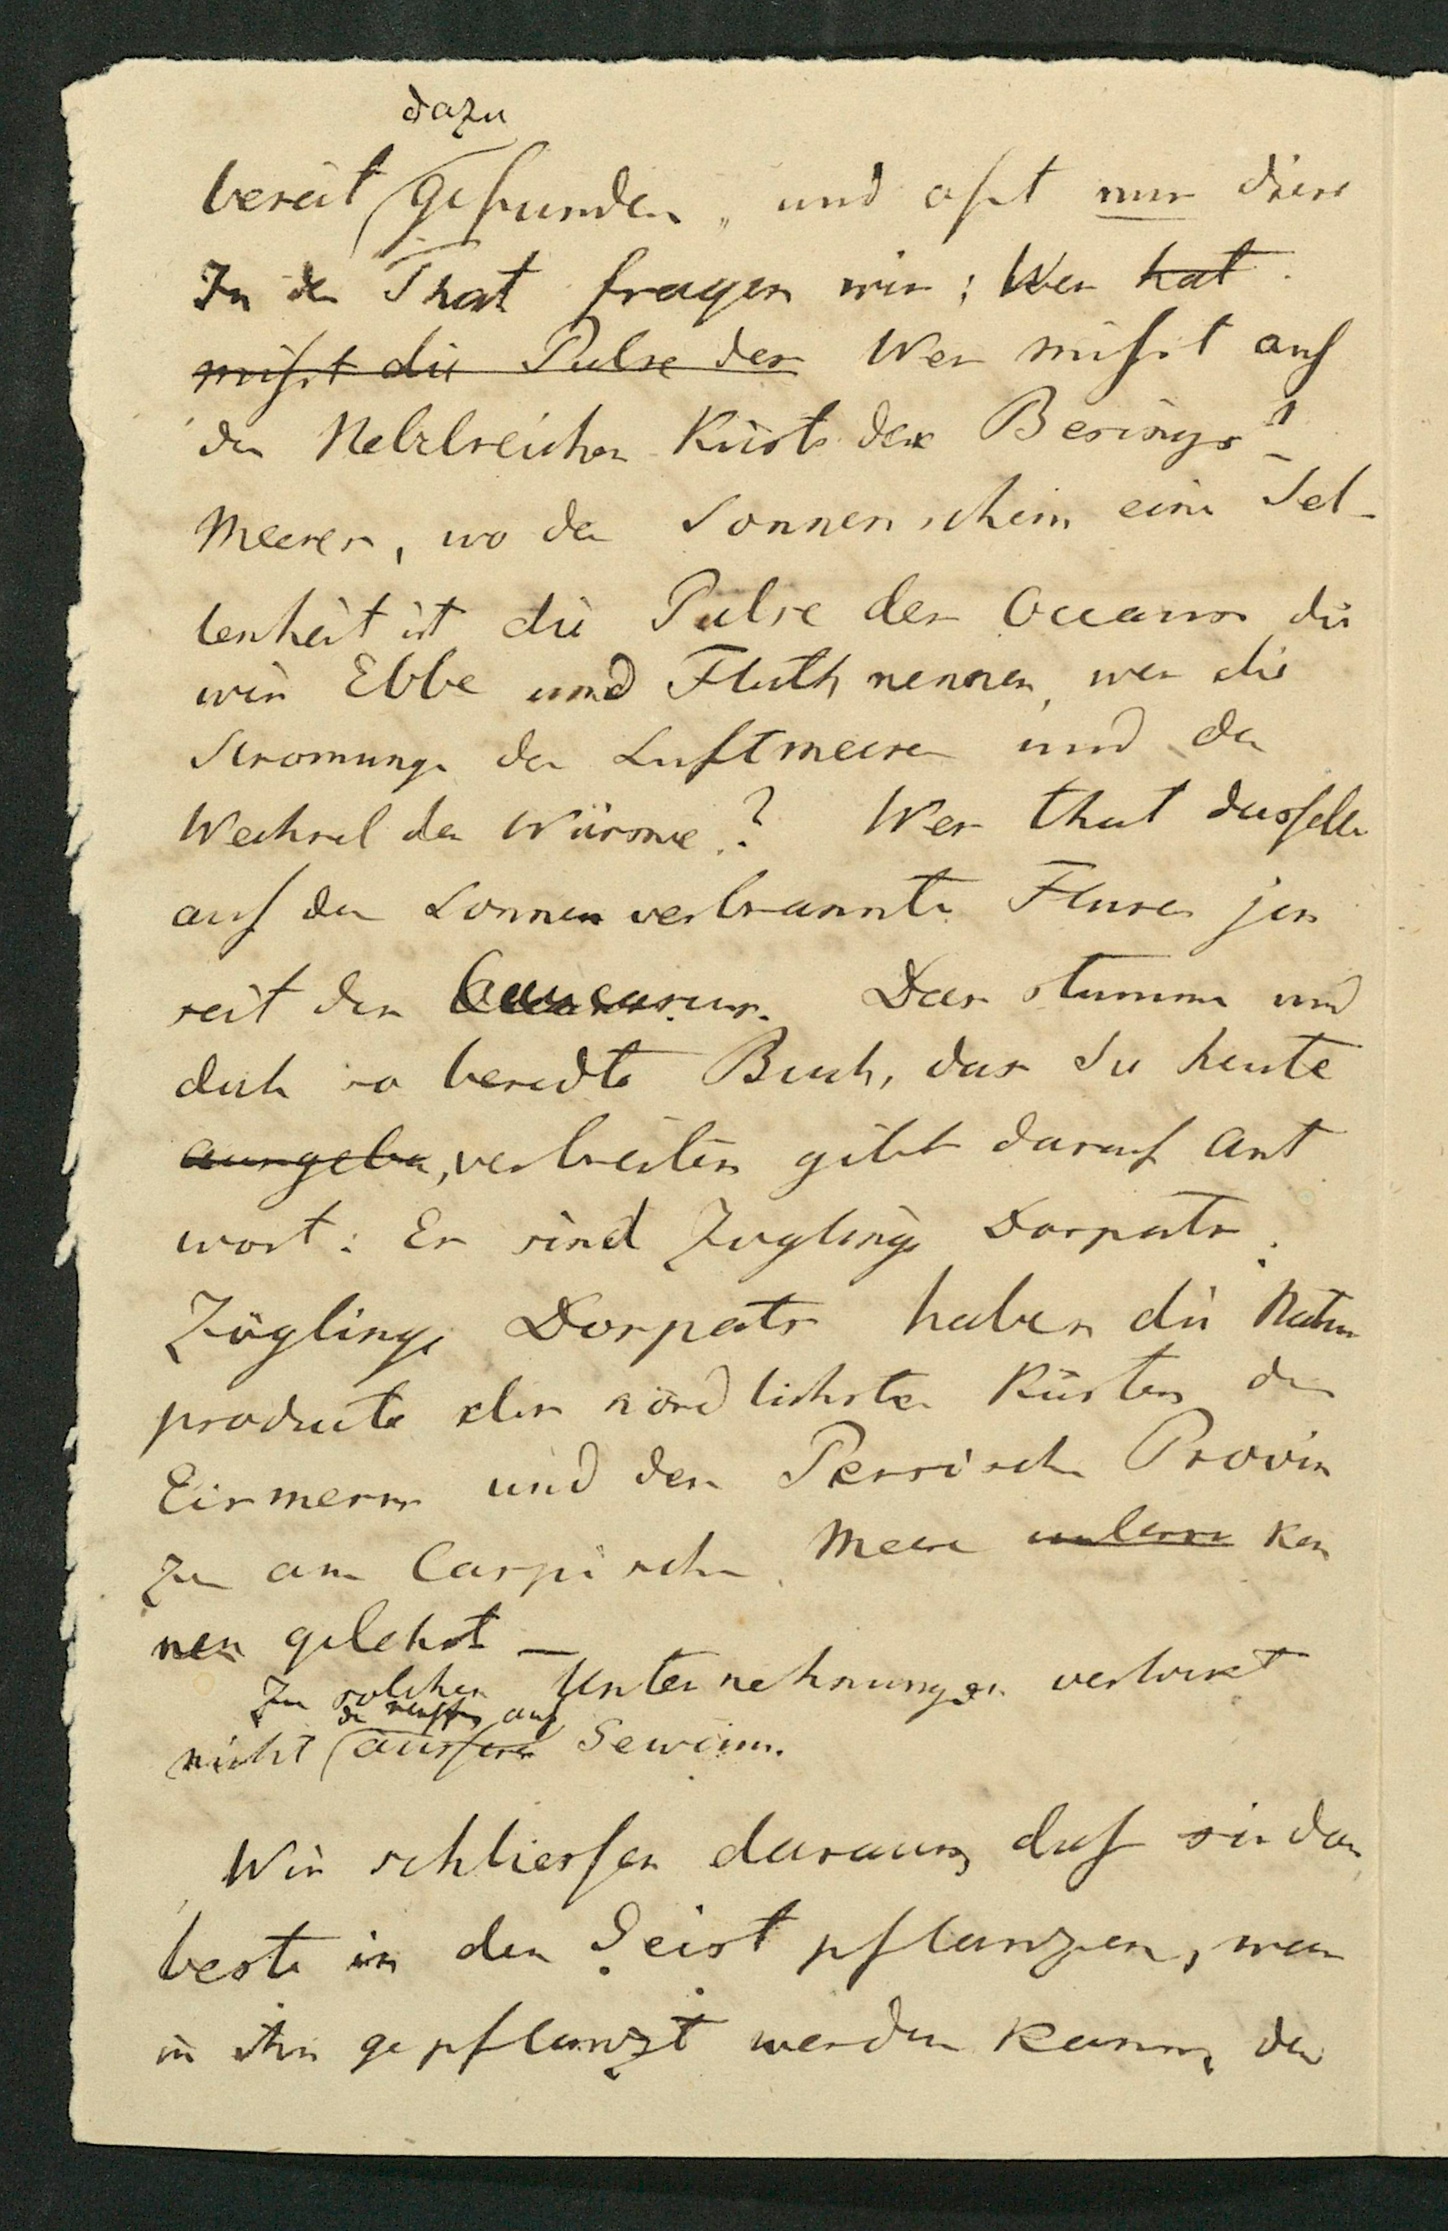 dazu
bereit gefunden, und oft nur diese
In der That fragen wir: Wer hat
mißt die Pulse des Wer mißt auf
der Nebelreichen Küste des Berings-
Meeres, wo der Sonnenschein eine Sel-
tenheit ist die Pulse des Oceans die
wir Ebbe und Fluth nennen, wer die
Stromunge des Luftmeeres und den
Wechsel der Wärme? Wer that dasselbe
auf den Sonnen verbrannten Fluren jen
seit des Caucasus. Das stumme und
doch so beredte Buch, das Sie heute
ausgeben, verbreiten gibt darauf Ant
wort: Es sind Zöglinge Dorpats.
Zöglinge Dorpats haben die Natur
producte der nördlichsten Küsten des
Eismeers und der Persischen Provin
zen am Caspischen Meere kennen
nen gelehrt —
Zu solchen Unternehmungen verlockt
nicht äussere Gewinn.
Wir schliessen daraus, daß sie das
beste in den Geist pflanzen, was
in ihn gepflanzt werden kann, den